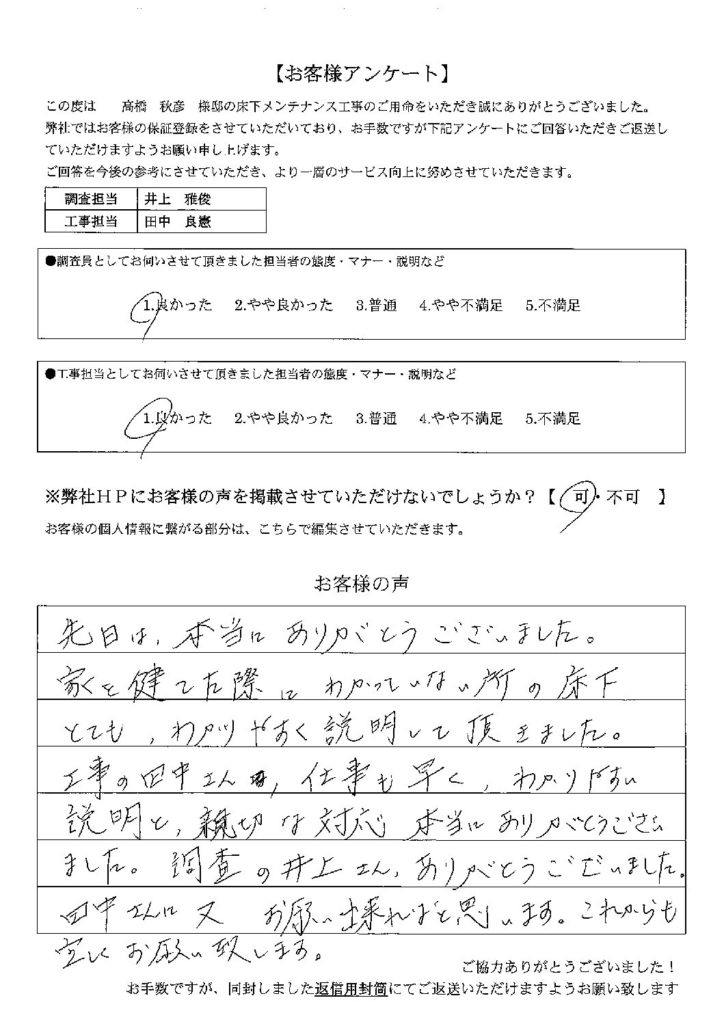 【お客様アンケート】
この度は 高橋 秋彦 様邸の床下メンテナンス工事のご用命をいただき誠にありがとうございました。
弊社ではお客様の保証登録をさせていただいており、お手数ですが下記アンケートにご回答いただきご返送し
ていただけますようお願い申し上げます。
ご回答を今後の参考にさせていただき、より一層のサービス向上に努めさせていただきます。
調査担当 井上 雅俊
工事担当 田中 良憲
●調査員としてお伺いさせて頂きました担当者の態度・マナー・説明など
1.良かった 2.やや良かった 3.普通 4.やや不満足 5.不満足
●工事担当としてお伺いさせて頂きました担当者の態度・マナー・説明など
1.良かった 2.やや良かった 3.普通 4.やや不満足 5.不満足
※弊社HPにお客様の声を掲載させていただけないでしょうか？【 可・不可 】
お客様の個人情報に繋がる部分は、こちらで編集させていただきます。
お客様の声
先日は、本当に ありがとう ございました。
家を建てた際に わかっていない所の床下
とても、わかりやすく説明して頂きました。
工事の田中さん、仕事も早く、わかりやすい
説明と、親切な対応 本当に ありがとうござい
ました。調査の井上さん、ありがとうございました。
田中さんに又 お願い出来ればと思います。これからも
宜しくお願い致します。
ご協力ありがとうございました！
お手数ですが、同封しました返信用封筒にてご返送いただけますようお願い致します